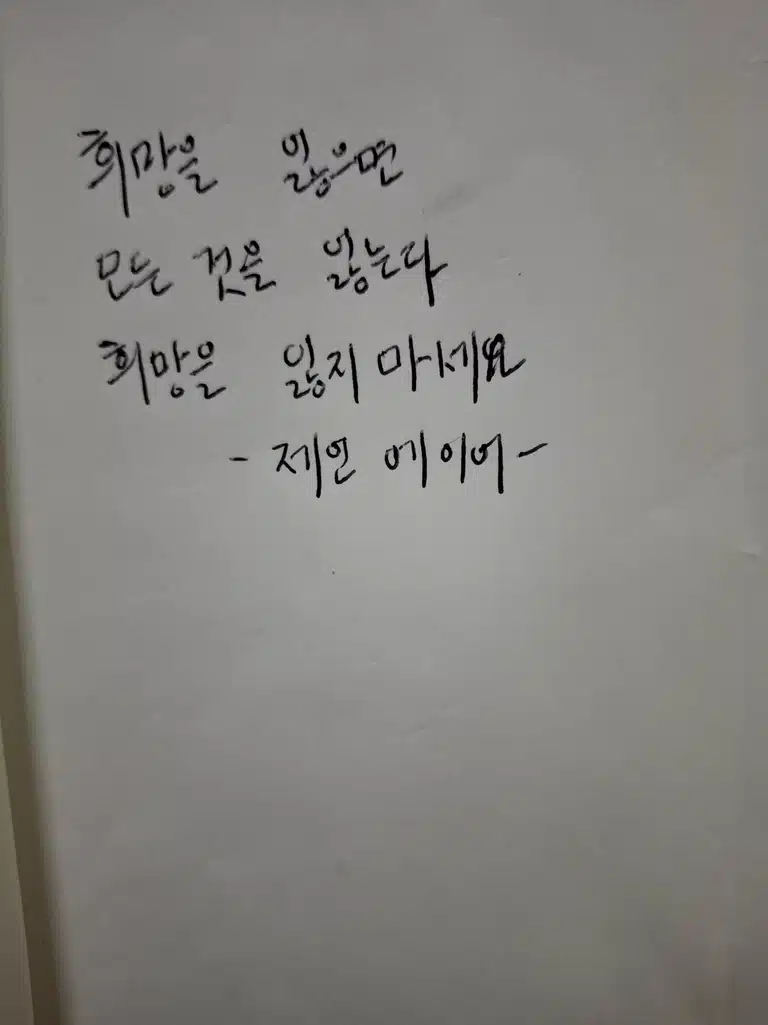 희망을 잃으면
모든 것을 잃는다
희망을 잃지 마세요
- 제인 에이어 -